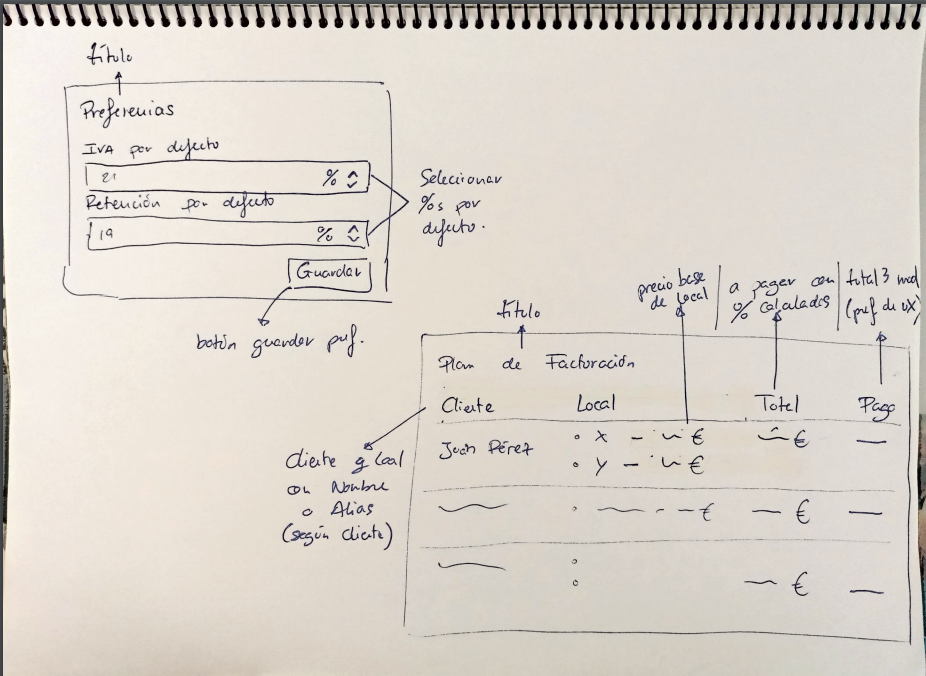 título
Preferencias
IVA por defecto
21 %
Retención por defecto
19 %
Guardar
Seleccionar
%s por
defecto.
botón guardar pref.
precio base
de local
a pagar con
% calculados
total 3 mod
(pref de UX)
título
Plan de Facturación
Cliente Local Total Pago
Juan Pérez • X - € €
• Y - €
€ €
€
Cliente y local
con Nombre
o Alias
(según cliente)